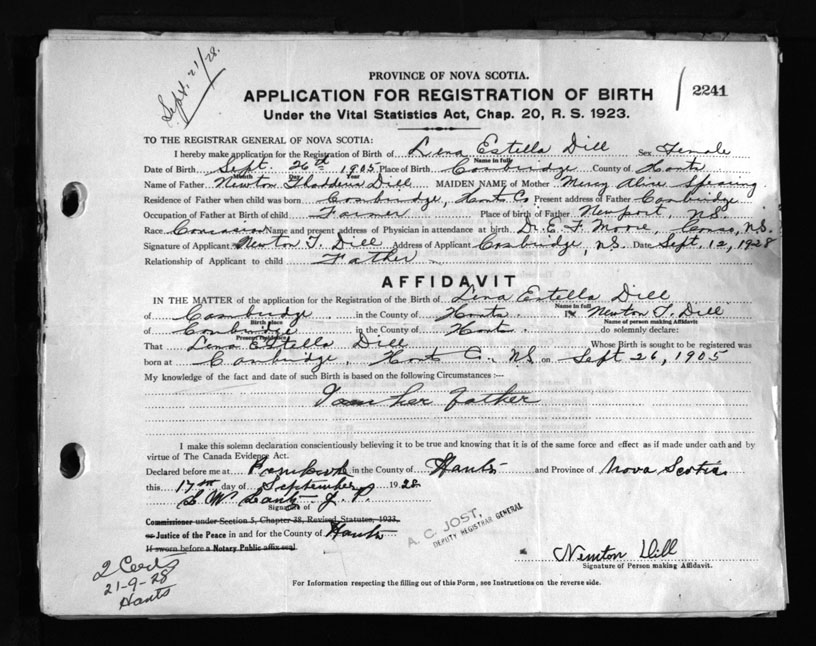 Sept. 21/28.
PROVINCE OF NOVA SCOTIA.
APPLICATION FOR REGISTRATION OF BIRTH
2241
Under the Vital Statistics Act, Chap. 20, R. S. 1923.
TO THE REGISTRAR GENERAL OF NOVA SCOTIA:
I hereby make application for the Registration of Birth of Lena Estella Dill Sex Female
Name in Full
Date of Birth Sept. 26th 1905 Place of Birth Cambridge County of Hants
Month Day Year
Name of Father Newton Thaddeus Dill MAIDEN NAME of Mother Mercy
Residence of Father when child was born Cambridge, Hants Co. Present address of Father Cambridge
Occupation of Father at Birth of child Farmer Place of birth of Father Newport, N.S.
Race Name and present address of Physician in attendance at birth Dr. E. F. Moore, Canso, N.S.
Signature of Applicant Newton T. Dill Address of Applicant Cambridge, N.S. Date Sept. 12, 1928
Relationship of Applicant to child Father
AFFIDAVIT
IN THE MATTER of the application for the Registration of the Birth of Lena Estella Dill
Name in Full
of Cambridge in the County of Hants I, Newton T. Dill
Birth place Name of person making Affidavit
of Cambridge in the County of Hants do solemnly declare:
Present Residence
That Lena Estella Dill Whose Birth is sought to be registered was
born at Cambridge, Hants Co. N.S. on Sept 26, 1905
My knowledge of the fact and date of such Birth is based on the following Circumstances :—
I am her father
I make this solemn declaration conscientiously believing it to be true and knowing that it is of the same force and effect as if made under oath and by
virtue of The Canada Evidence Act.
Declared before me at in the County of Hants and Province of Nova Scotia
this 17th day of September 1928
J. P.
Signature of
Commissioner under Section 5, Chapter 38, Revised Statutes, 1923.
or Justice of the Peace in and for the County of Hants
If sworn before a Notary Public affix seal
A. C. JOST,
DEPUTY REGISTRAR GENERAL
Newton Dill
Signature of Person making Affidavit.
2 Certs
21-9-28
Hants
For Information respecting the filling out of this Form, see Instructions on the reverse side.